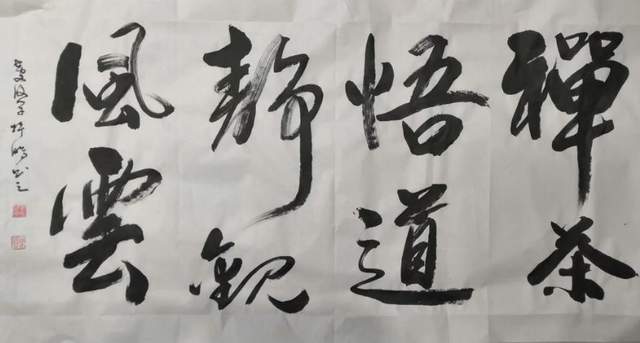 禪茶
悟道
靜觀
風雲